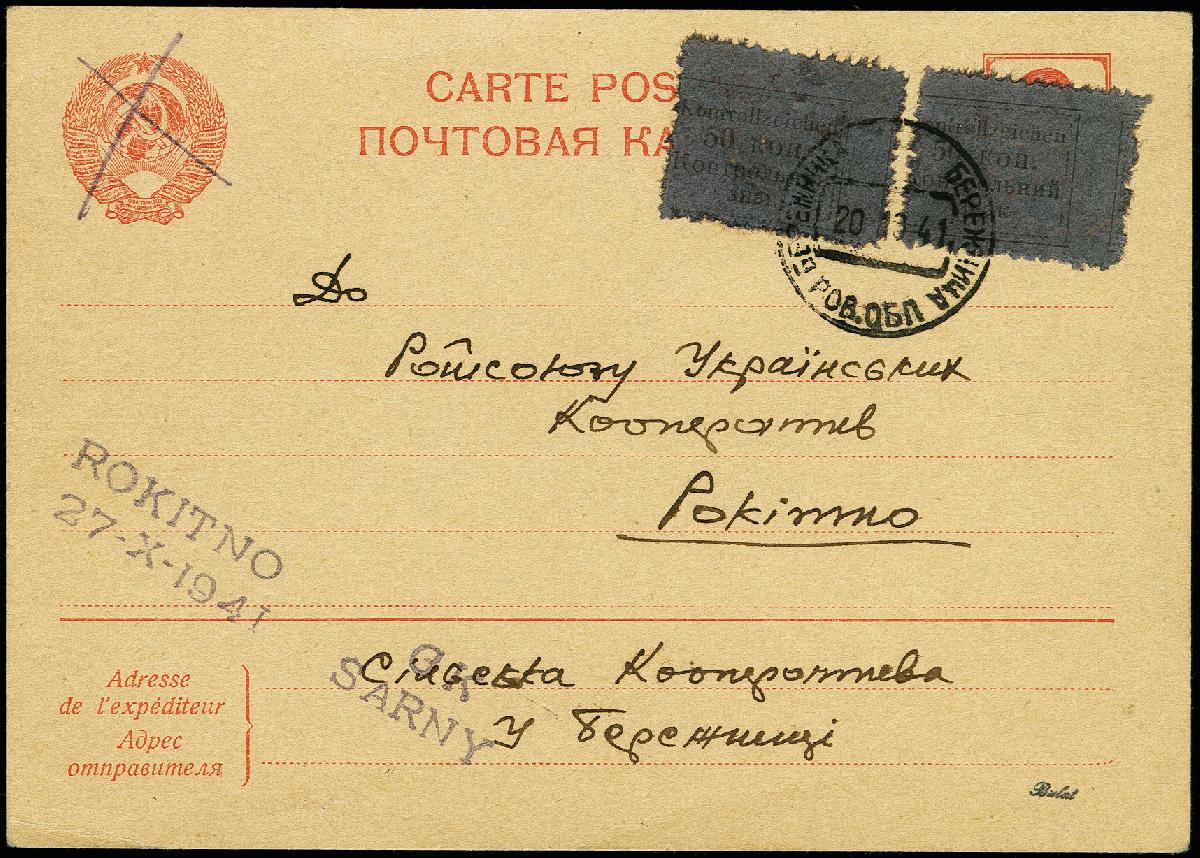 CARTE POS
ПОЧТОВАЯ КА
Kontrollzeichen
50 коп.
Контрольн
зна
ntrollzeichen
50 коп.
Контрольний
к
БЕРЕЖНИЦА
20 10 41
РОВ.ОБЛ
До
Райсоюзу Українських
Кооператив
Рокітно
ROKITNO
27-X-1941
GK
SARNY
Adresse
de l'expéditeur
Адрес
отправителя
Сільська Кооператива
У Бережниці